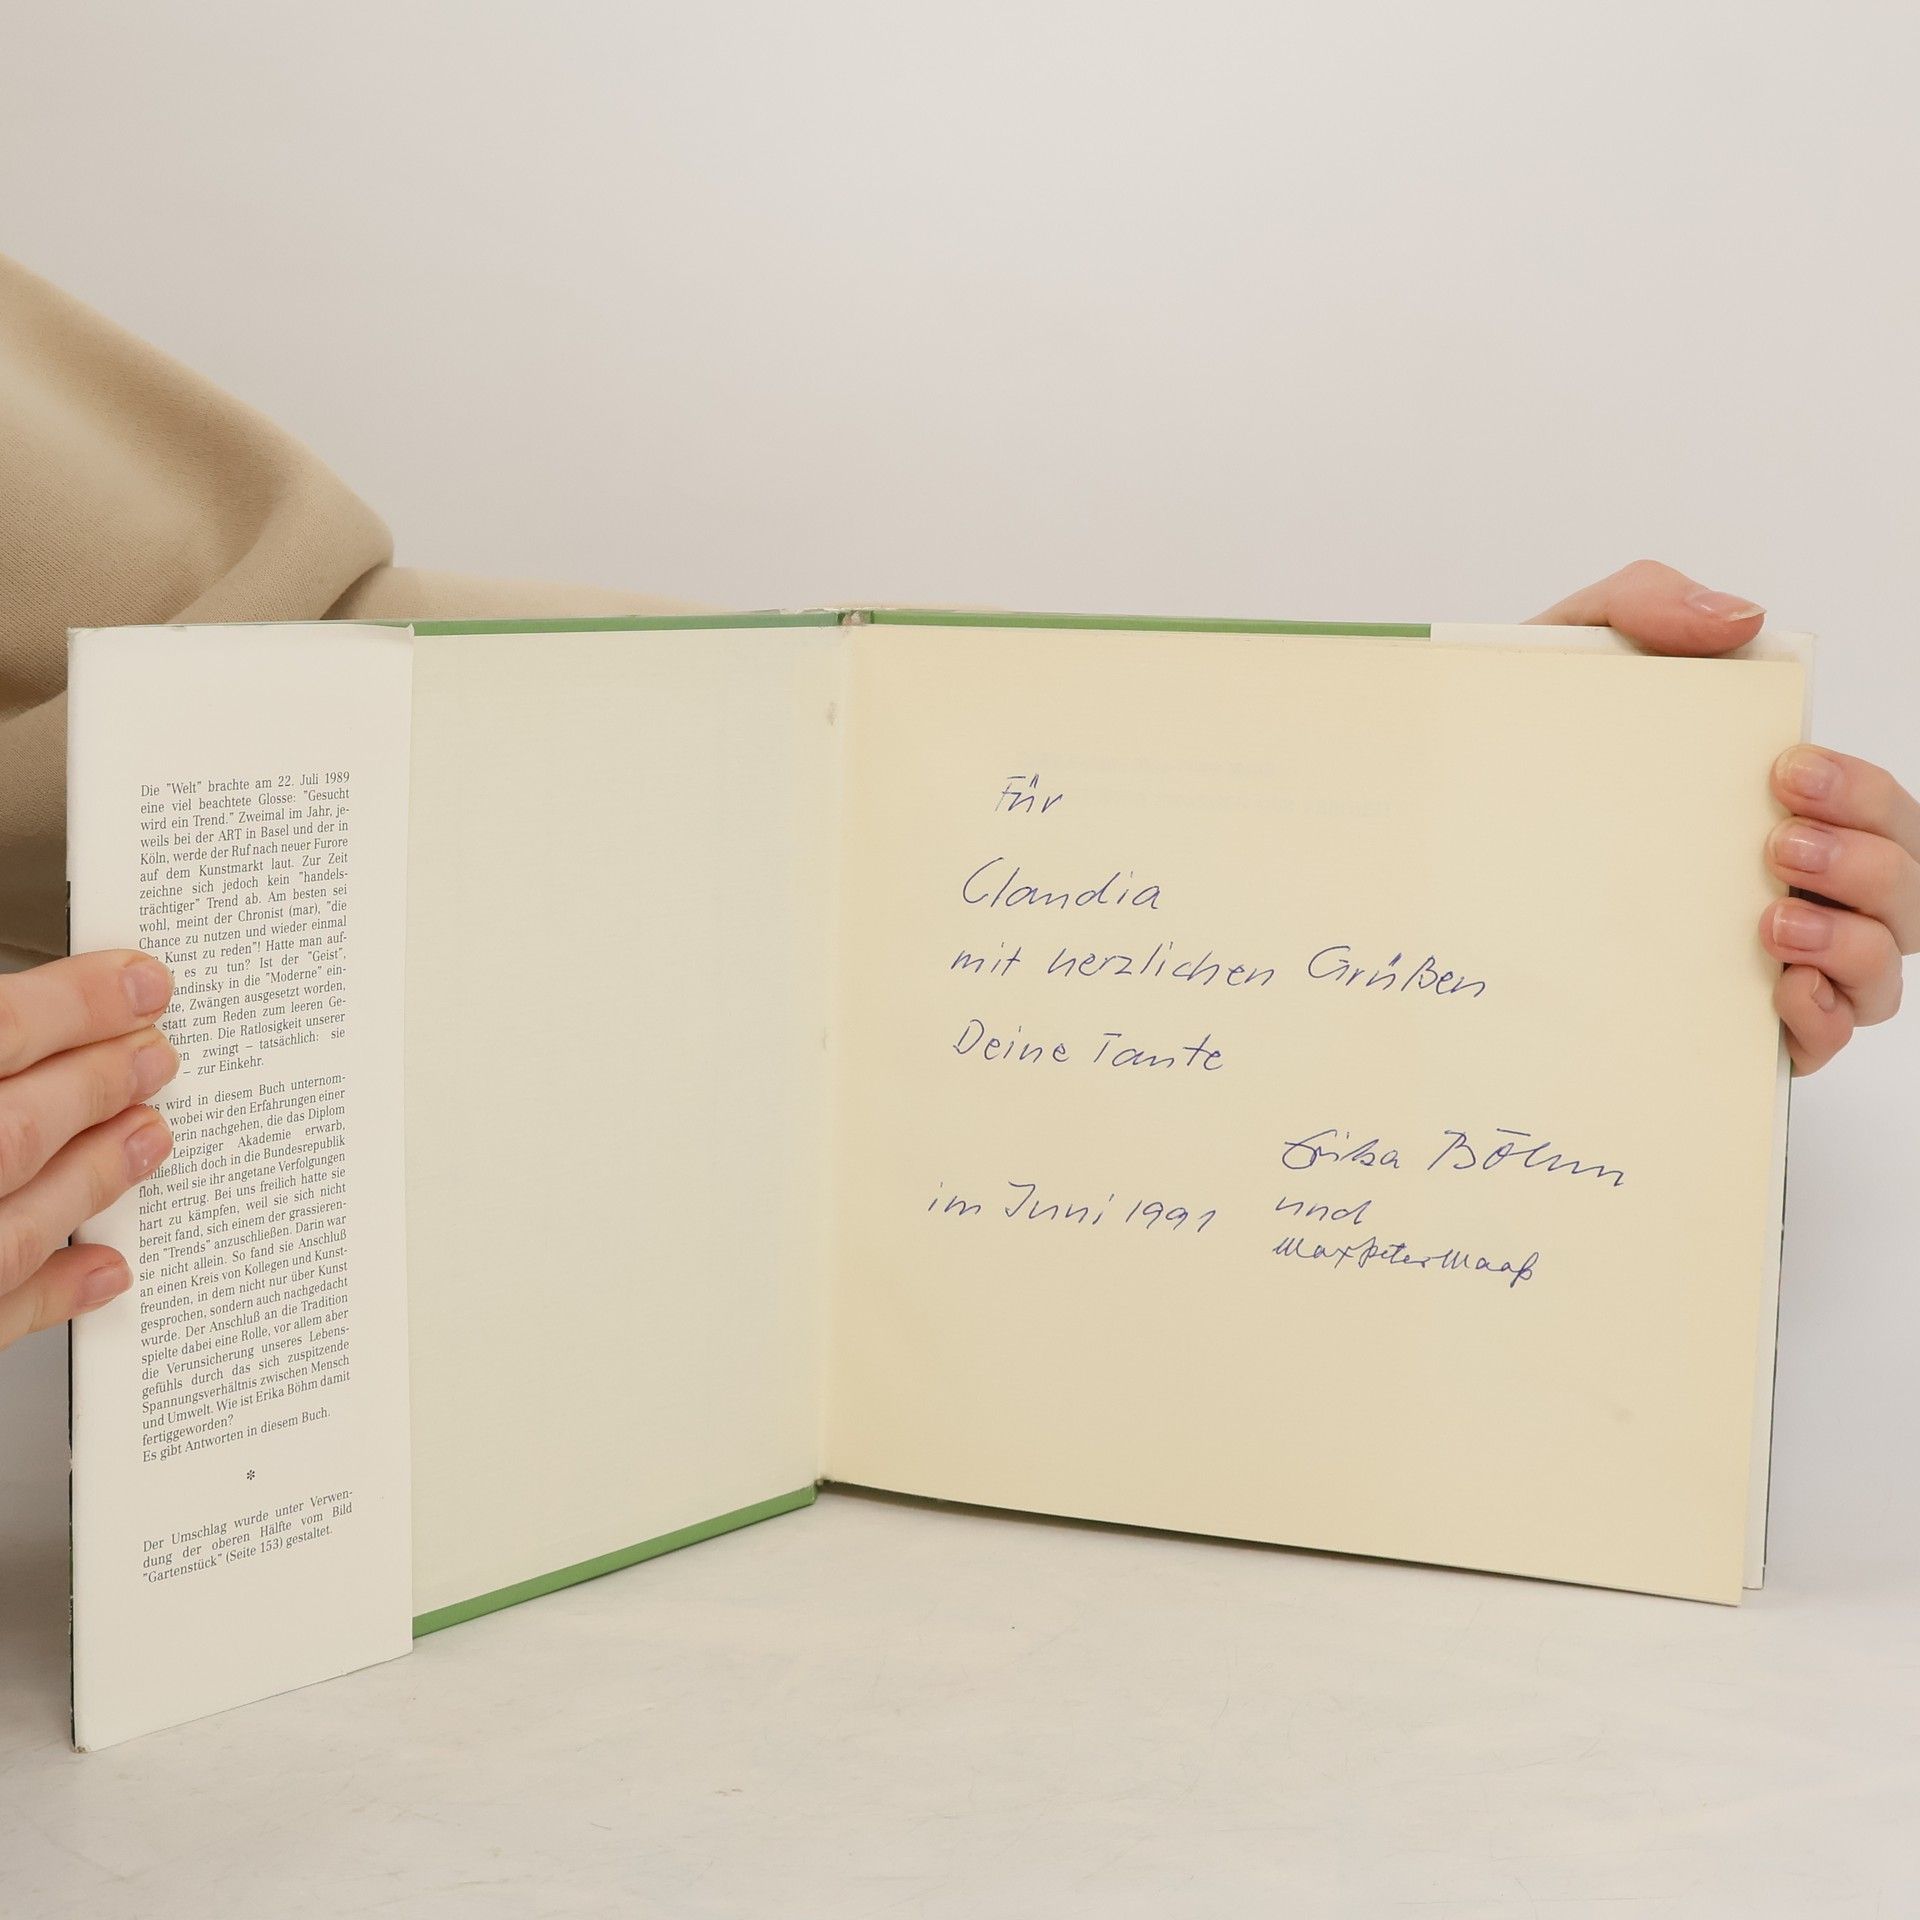 Die "Welt" brachte am 22. Juli 1989
eine viel beachtete Glosse: "Gesucht
wird ein Trend." Zweimal im Jahr, je-
weils bei der ART in Basel und der in
Köln, werde der Ruf nach neuer Furore
auf dem Kunstmarkt laut. Zur Zeit
zeichne sich jedoch kein "handels-
trächtiger" Trend ab. Am besten sei
wohl, meint der Chronist (mar), "die
Chance zu nutzen und wieder einmal
Kunst zu reden"! Hatte man auf-
es zu tun? Ist der "Geist",
andinsky in die "Moderne" ein-
te, Zwängen ausgesetzt worden,
statt zum Reden zum leeren Ge-
führten. Die Ratlosigkeit unserer
en zwingt – tatsächlich: sie
– zur Einkehr.
as wird in diesem Buch unternom-
wobei wir den Erfahrungen einer
lerin nachgehen, die das Diplom
Leipziger Akademie erwarb,
ließlich doch in die Bundesrepublik
floh, weil sie ihr angetane Verfolgungen
nicht ertrug. Bei uns freilich hatte sie
hart zu kämpfen, weil sie sich nicht
bereit fand, sich einem der grassieren-
den "Trends" anzuschließen. Darin war
sie nicht allein. So fand sie Anschluß
an einen Kreis von Kollegen und Kunst-
freunden, in dem nicht nur über Kunst
gesprochen, sondern auch nachgedacht
wurde. Der Anschluß an die Tradition
spielte dabei eine Rolle, vor allem aber
die Verunsicherung unseres Lebens-
gefühls durch das sich zuspitzende
Spannungsverhältnis zwischen Mensch
und Umwelt. Wie ist Erika Böhm damit
fertiggeworden?
Es gibt Antworten in diesem Buch.
*
Der Umschlag wurde unter Verwen-
dung der oberen Hälfte vom Bild
"Gartenstück" (Seite 153) gestaltet.
Für
Claudia
mit herzlichen Grüßen
Deine Tante
Erika Böhm
im Juni 1991 und
Max Peter Maaß